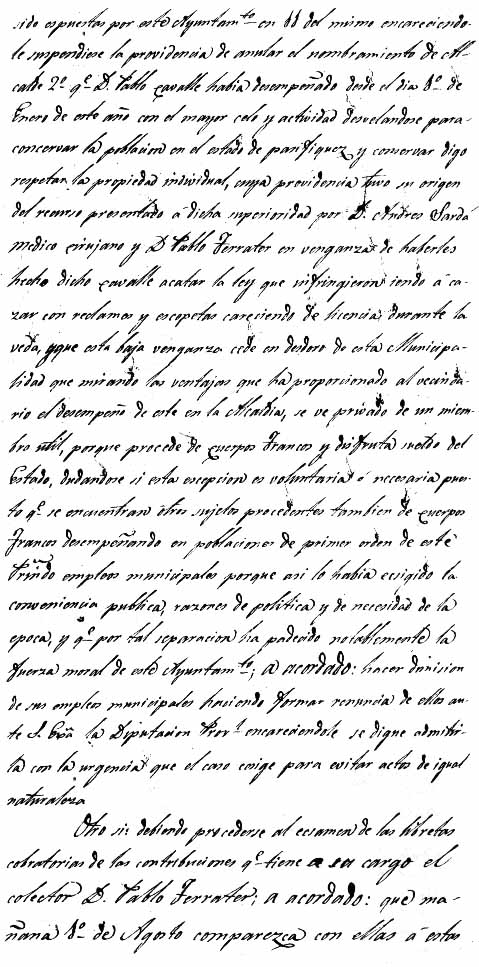 sido espuestos por este Ayuntamto en 11 del mismo encareciendo-
le suspendiese la providencia de anular el nombramiento de Al-
calde 2º qe D. Pablo Cavallé habia desempeñado desde el dia 1º de
Enero de este año con el mayor celo y actividad desvelandose para
concervar la poblacion en el estado de panifiquez y conservar digo
respetar la propiedad individual, cuya providencia tuvo su origen
del recurso presentado á dicha superioridad por D. Andres Sardá
medico cirujano y D Pablo Ferrater en venganza de haberles
hecho dicho Cavallé acatar la ley que infringieron iendo á ca-
zar con reclamos y escopetas careciendo de licencia durante la
veda, y que esta baja venganza cede en desdoro de esta Municipa-
lidad que mirando las ventajas que ha proporcionado al vecinda-
rio el desempeño de este en la Alcaldia, se ve privado de un miem-
bro util, porque procede de cuerpos Francos y disfruta sueldo del
Estado, dudandose si esta escepcion es voluntaria ó necesaria pues-
to qe se encuentran otros sujetos procedentes tambien de cuerpos
Francos desempeñando en poblaciones de primer orden de este
empleos municipales porque asi lo habia ecsigido la
conveniencia publica, razones de politica y de necesidad de la
epoca, y qe por tal separacion ha padecido notablemente la
fuerza moral de este Ayuntamto; a acordado: hacer dimision
de sus empleos municipales haciendo formar renuncia de ellos an-
te S. Exª la Diputacion Provl encareciendole se digne admitir-
la con la urgencia que el caso ecsige para evitar actos de igual
naturaleza
Otro si: debiendo procederse al ecsamen de las libretas
cobratorias de las contribuciones qe tiene a su cargo el
colector D. Pablo Ferrater; a acordado: que ma-
ñana 1º de Agosto comparezca con ellas á estas